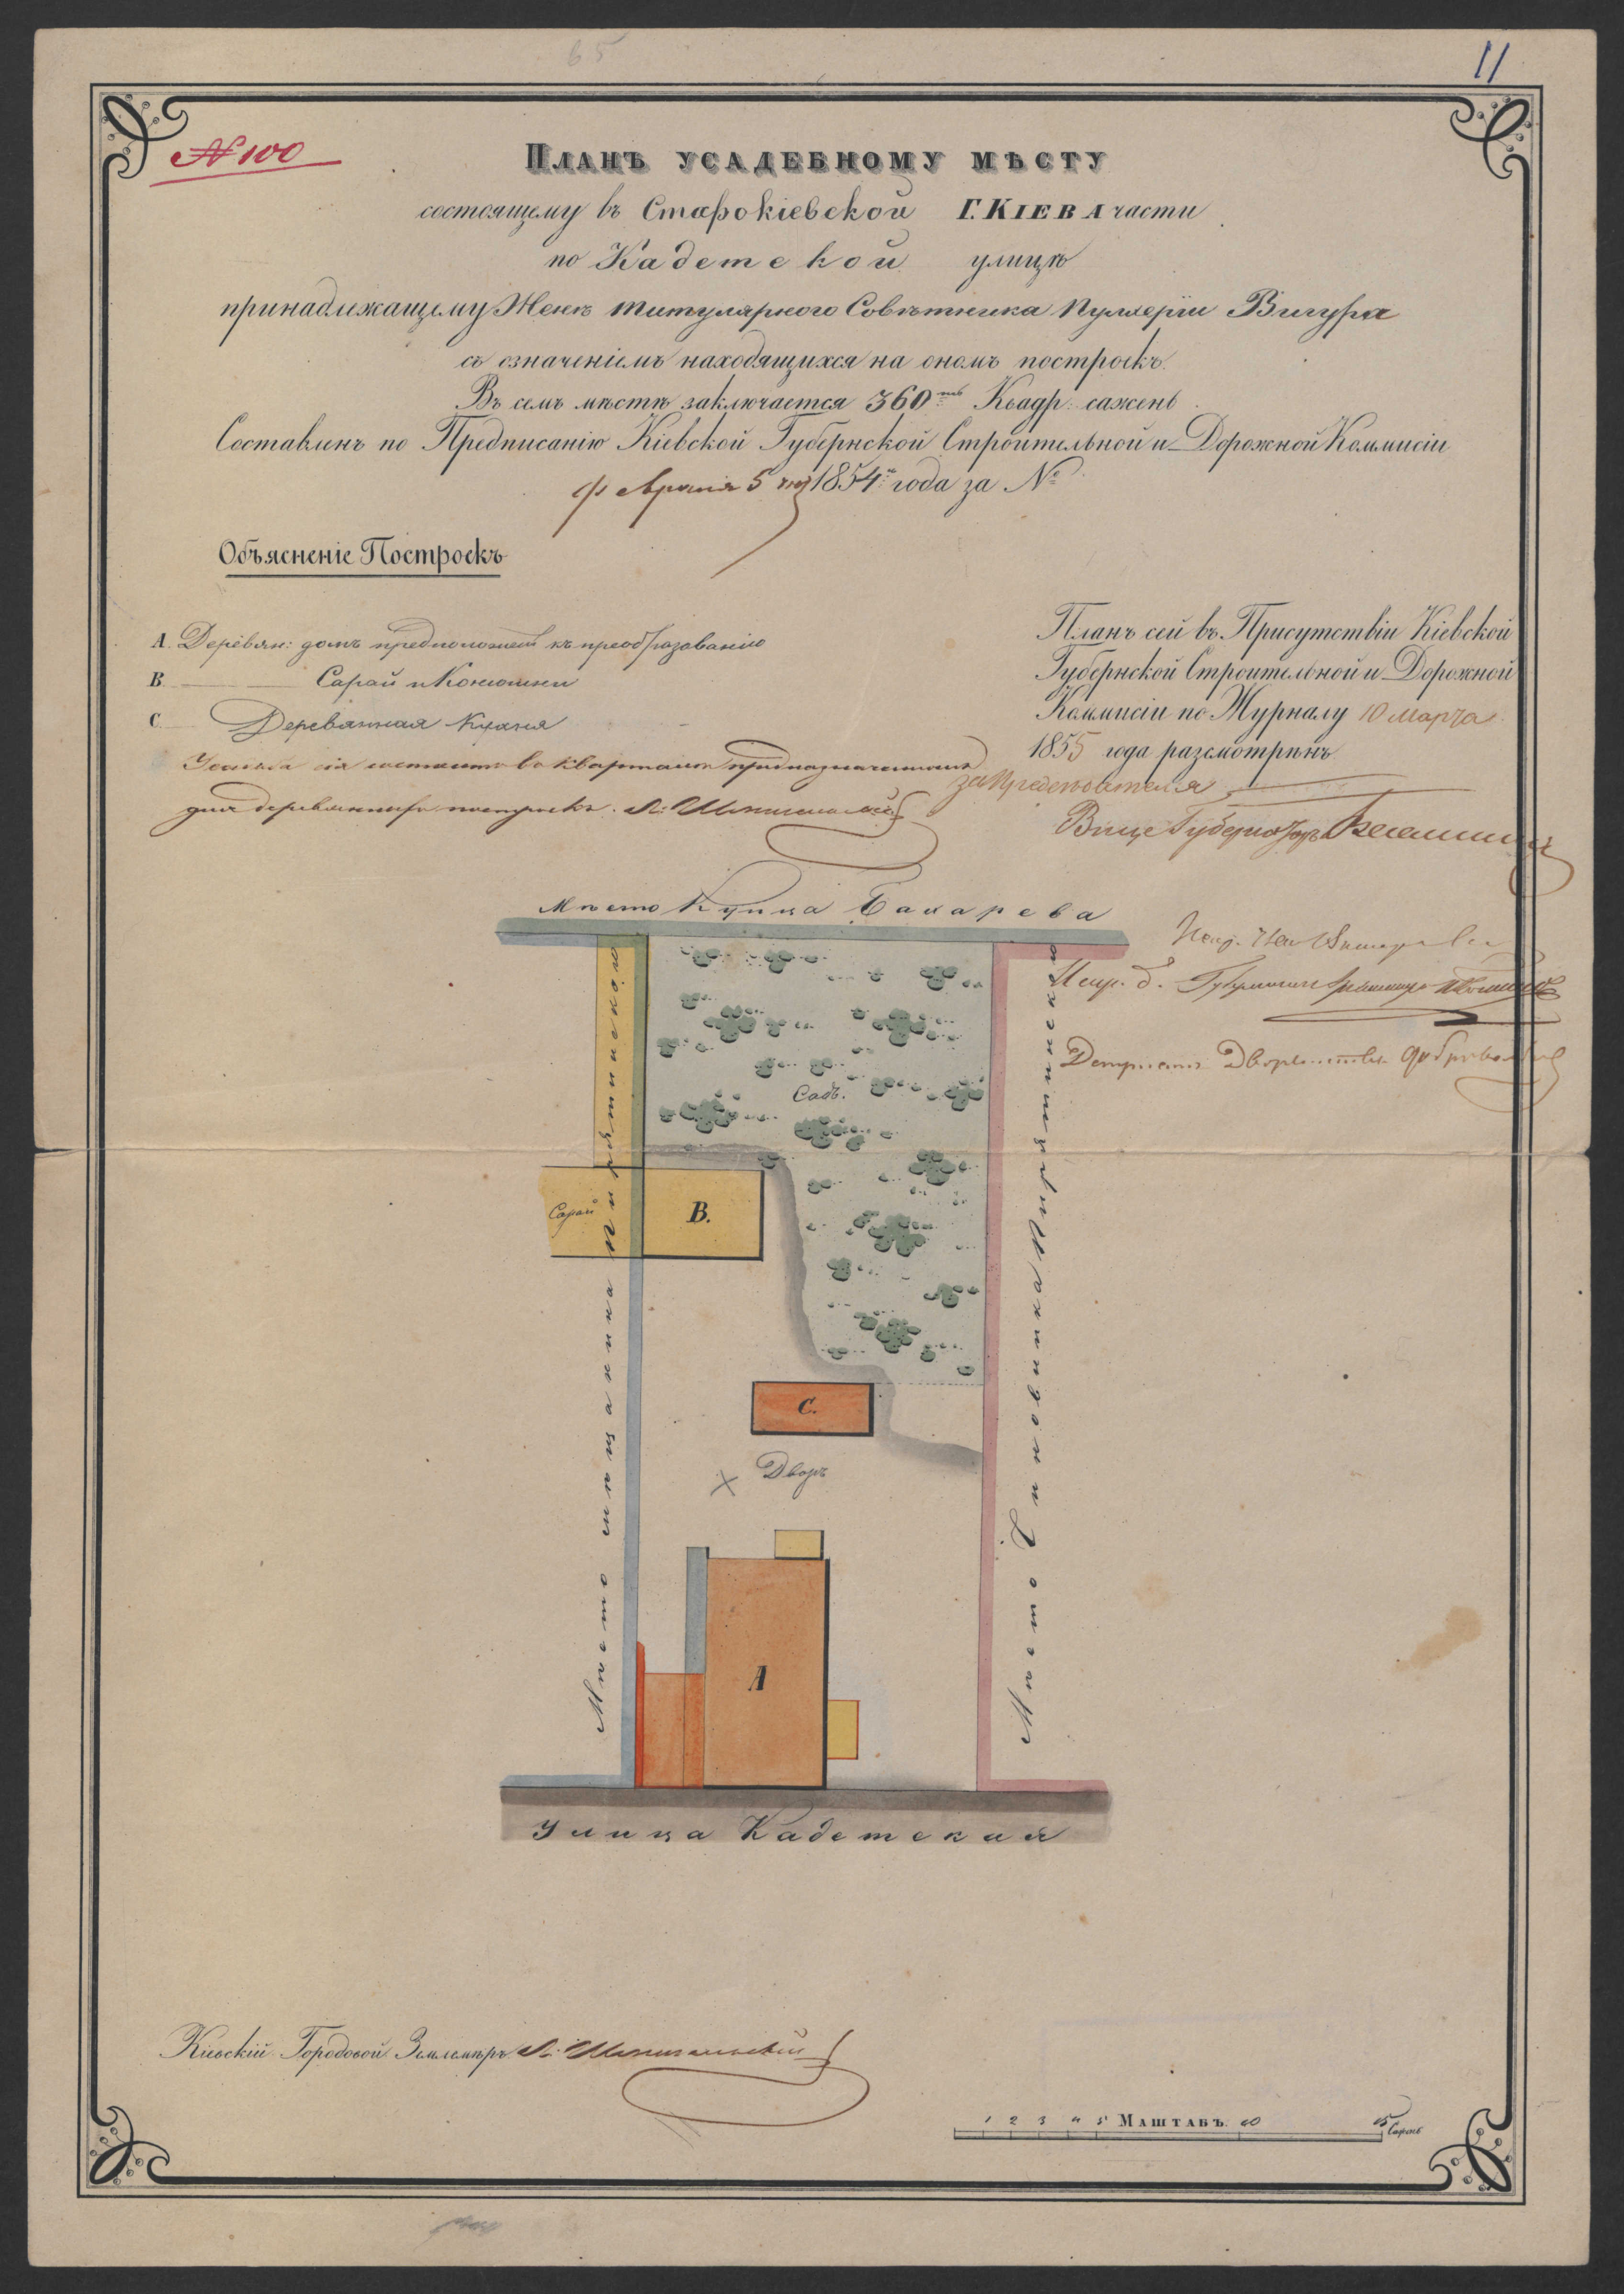 65
11
№ 100
Планъ усадебному мѣсту
состоящему въ Старокіевской Г. Кіева части
по Кадетской улицѣ
принадлежащему Женѣ титулярного Совѣтника Пулхеріи Вигура
съ означеніемъ находящихся на ономъ построекъ.
Въ семъ мѣстѣ заключается 360 Квадр: сажень
Составленъ по Предписанію Кіевской Губернской Строительной и Дорожной Коммисіи
февраля 5 1854 года за №
Объясненіе Построекъ
А. Деревян: домъ къ преобразованію
В. Сарай и Конюшни
С. Деревянная Кухня
Усадьба сія состоитъ въ Кварталѣ предназначенномъ
для деревянныхъ построекъ.
Планъ сей въ Присутствіи Кіевской
Губернской Строительной и Дорожной
Коммисіи по Журналу 10 марта
1855 года разсмотрѣнъ
за Председателя
Вице Губернаторъ
Мѣсто Купца Бахарева
Сад.
Сарай
В.
С.
Дворъ
А
Мѣсто мѣщанина
Мѣсто
Улица Кадетская
Кіевскій Городовой Землемѣръ
1 2 3 4 5 Маштабъ. 10 15 Саженъ